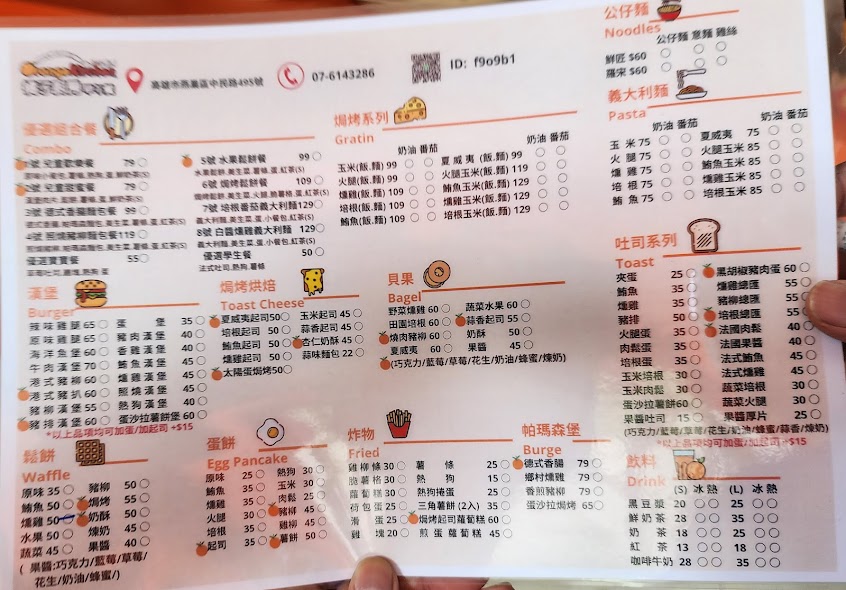 高雄市燕巢區中民路495號
07-6143286
ID: f9o9b1
公仔麵
Noodles
公仔麵 意麵 雞絲
鮮匠 $60
羅宋 $60
義大利麵
Pasta
奶油 番茄 奶油 番茄
玉米 75 夏威夷 75
火腿 75 火腿玉米 85
燻雞 75 鮪魚玉米 85
培根 75 燻雞玉米 85
鮪魚 75 培根玉米 85
優選組合餐
Combo
1號 兒童歡樂餐 79
2號 兒童甜蜜餐 79
3號 德式香腸麵包餐 99
4號 照燒豬柳麵包餐 119
優選寶寶餐 55
5號 水果鬆餅餐 99
水果鬆餅,美生菜,薯條,蛋,紅茶(S)
6號 焗烤鬆餅餐 109
焗烤鬆餅,美生菜,火腿,脆薯格,蛋,紅茶(S)
7號 培根番茄義大利麵 129
義大利麵,美生菜,蛋,小餐包,紅茶(S)
8號 白醬燻雞義大利麵 129
義大利麵,美生菜,蛋,小餐包,紅茶(S)
優選學生餐 50
法式吐司,熱狗,薯條
焗烤系列
Gratin
奶油 番茄 奶油 番茄
玉米(飯.麵) 99 夏威夷(飯.麵) 99
火腿(飯.麵) 99 火腿玉米(飯.麵) 119
燻雞(飯.麵) 109 鮪魚玉米(飯.麵) 129
培根(飯.麵) 109 燻雞玉米(飯.麵) 129
鮪魚(飯.麵) 109 培根玉米(飯.麵) 129
漢堡
Burger
辣味雞腿 65 蛋堡 35
原味雞腿 65 豬肉漢堡 40
海洋魚堡 60 香雞漢堡 40
牛肉漢堡 70 鮪魚漢堡 45
港式豬柳 60 燻雞漢堡 45
港式豬扒 60 照燒漢堡 45
豬柳漢堡 55 熱狗漢堡 40
豬排漢堡 60 蛋沙拉薯餅堡 60
*以上品項均可加蛋/加起司 +$15
焗烤烘焙
Toast Cheese
夏威夷起司 50 玉米起司 45
培根起司 50 蒜香起司 45
鮪魚起司 50 杏仁奶酥 45
燻雞起司 50 蒜味麵包 22
太陽蛋焗烤 50
貝果
Bagel
野菜燻雞 60 蔬菜水果 60
田園培根 60 蒜香起司 55
燒肉豬柳 60 奶酥 50
夏威夷 60 果醬 45
(巧克力/藍莓/草莓/花生/奶油/蜂蜜/煉奶)
吐司系列
Toast
夾蛋 25 黑胡椒豬肉蛋 60
鮪魚 35 燻雞總匯 55
燻雞 35 豬柳總匯 55
豬排 50 培根總匯 55
火腿蛋 35 法國肉鬆 40
肉鬆蛋 35 法國果醬 40
培根蛋 35 法式鮪魚 45
玉米培根 30 法式燻雞 45
玉米肉鬆 30 蔬菜培根 30
蛋沙拉薯餅 60 蔬菜火腿 30
果醬吐司 15 果醬厚片 25
(巧克力/藍莓/草莓/花生/奶油/蜂蜜/蒜香/煉奶)
*以上品項均可加蛋/加起司 +$15
鬆餅
Waffle
原味 35 豬柳 50
鮪魚 50 焗烤 55
燻雞 50 奶酥 50
水果 50 煉奶 45
蔬菜 45 果醬 40
(果醬:巧克力/藍莓/草莓/
花生/奶油/蜂蜜/)
蛋餅
Egg Pancake
原味 25 熱狗 30
鮪魚 35 玉米 30
燻雞 35 肉鬆 25
火腿 30 豬柳 45
培根 35 雞柳 45
起司 35 薯餅 50
炸物
Fried
雞柳條 30 薯條 25
脆薯格 30 熱狗 15
蘿蔔糕 30 熱狗捲蛋 25
荷包蛋 25 三角薯餅(2入) 35
滑蛋 25 焗烤起司蘿蔔糕 60
雞塊 20 煎蛋蘿蔔糕 45
帕瑪森堡
Burge
德式香腸 79
鄉村燻雞 79
香煎豬柳 79
蛋沙拉焗烤 65
飲料
Drink
(S) 冰 熱 (L) 冰 熱
黑豆漿 20 25
鮮奶茶 28 35
奶茶 18 25
紅茶 13 18
咖啡牛奶 28 35